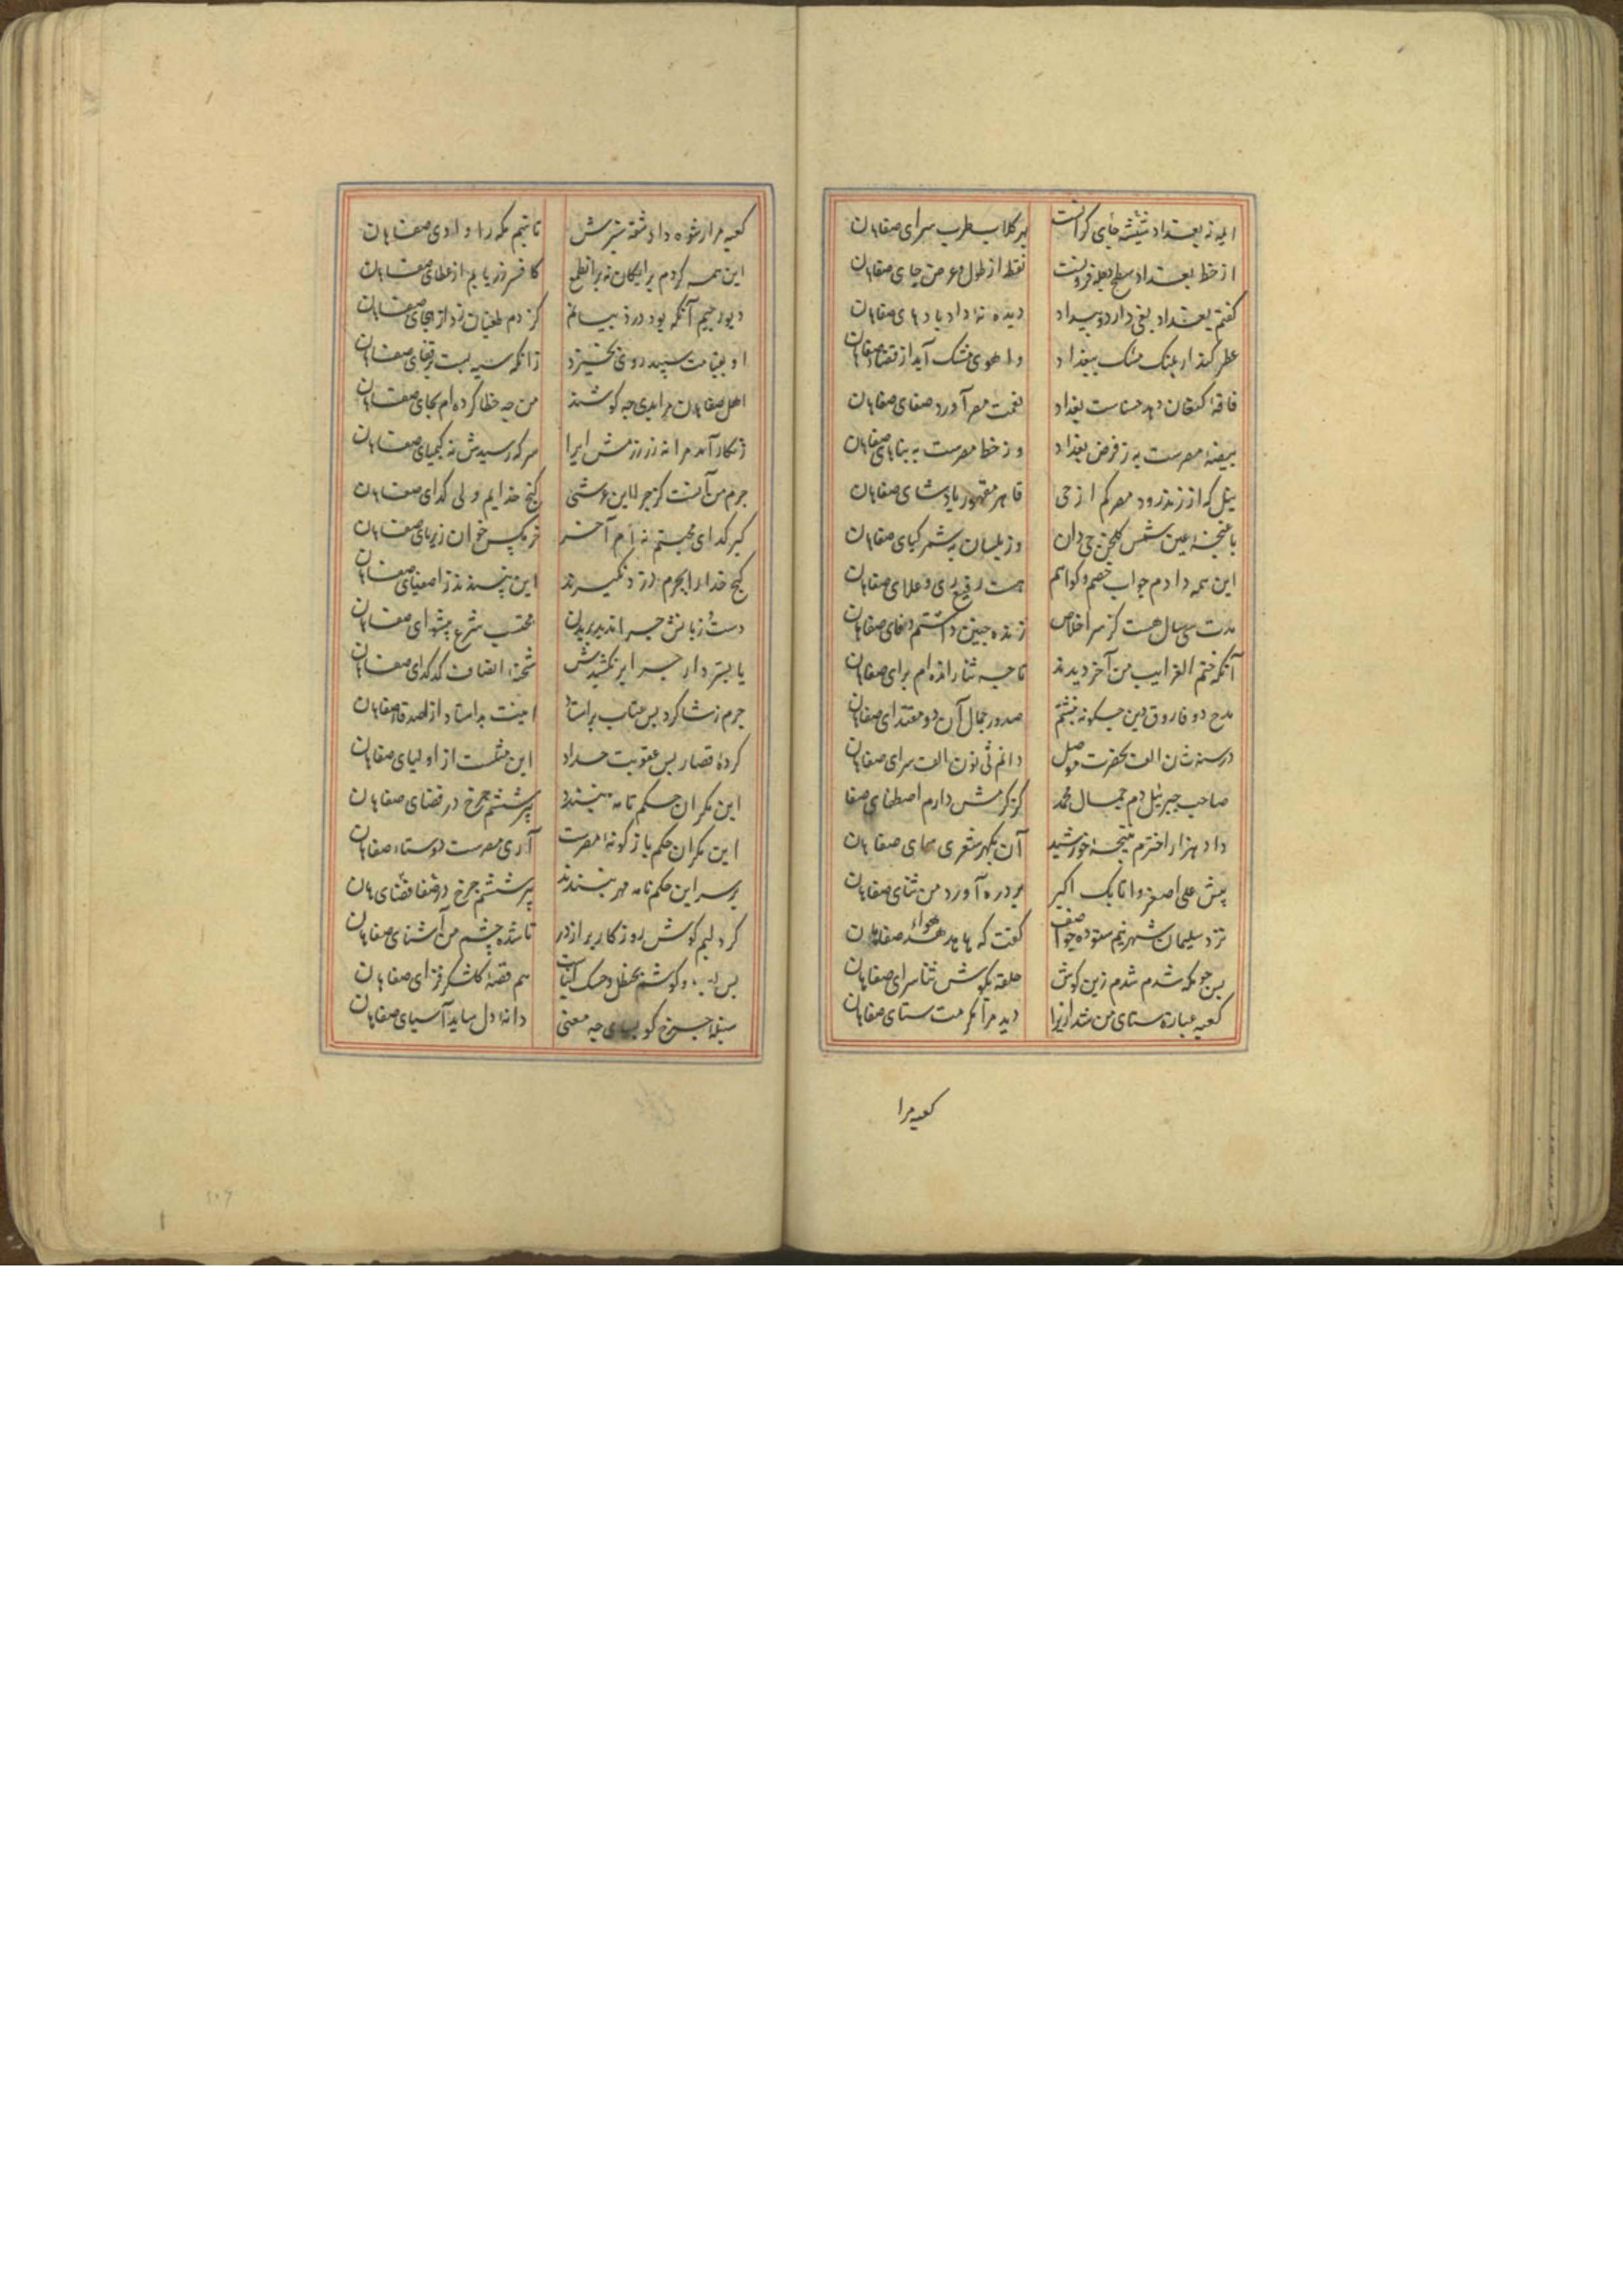 ایله نه بغداد شیشه جای کرانست بهر کلاب طرب سرای صفاهان
از خط بغداد سطح دجله فزونست نقطه از طول و عرض جای صفاهان
کفتم بغداد بغی دارد و بیداد دیده نه داد بادهای صفاهان
عطر کند از پلنک مشک ببغداد و اهوی مشک آید از فضای صفاهان
فاقهٔ کنعان دهد خساست بغداد نعمت مصر آورد صفای صفاهان
بیضهٔ مصرست به ز فرضهٔ بغداد وز خط مصرست به بنای صفاهان
نیل که از زنده رود مصر کم از جی قاهر مقهور پادشای صفاهان
باغچهٔ عین شمس کلخن جی دان وز بلسان به شمر کیای صفاهان
این همه دادم جواب خصم و کواهم هست رفیع رای و علای صفاهان
مدت سی سال هست کز سر اخلاص زنده چنین داشتم وفای صفاهان
آنکه ختم الغرایب من آخر دیدند تا چه ثنا رانده‌ام برای صفاهان
مدح دو فاروق دین چکونه نبشتم صدور جمال آن دو مقتدای صفاهان
در سنه ثان الف بحضرت موصل راندم ثی نون الف سرای صفاهان
صاحب جبریل دم جمال محمد کز کرمش دارم اصطفای صفا
داد هزار اخترم نتیجهٔ خورشید آن بکهر شعری سمای صفاهان
پیش علی اصغر و اتابک اکبر بر دره آورد من ثنای صفاهان
نزد سلیمان شهم ستوده چو آصف کفت که ها هدهد هوای صفاهان
بس چو بمکه شدم شدم زبن کوش حلقه بکوش ثناسرای صفاهان
کعبه عبارة ستای من شد ازیرا دید مرا مکرمت ستای صفاهان
کعبه مرا
کعبه مرا رشوه داد شقهٔ سبزش تا نیم مکه را ورای صفاهان
این همه کردم برایکان نه برا طمع کافسر زر یابم از عطای صفاهان
دیو رجیم آنکه بود دزد بیانم کز دم طغیان زد از هجای صفاهان
او بقیامت سپید روی نخیزد زانکه سیه بست بر قفای صفاهان
اهل صفاهان مرا بدی چه کوشند من چه خطا کرده ام بجای صفاهان
زنکار آمد مرا نه زر ز مس ایرا سر که رسیدش نه کیمیای صفاهان
جرم من آنست کز خزاین عرشی کنج خدایم ولی کدای صفاهان
کیر کدای محبتم نه ام آخر خرمکس خوان ریزهای صفاهان
کنج خدا را بجرم دزد نکیرند این نپسندند ز اصفیای صفاهان
دست و زبانش چرا ندید بریدن محتسب شرع پیشوای صفاهان
یا بسر دار چرا بر نکشیدش شحنهٔ انصاف کدخدای صفاهان
جرم ز شاکرد پس عتاب بر استاد اینت بد استاد از اصدقای صفاهان
کردهٔ قصار پس عقوبت حداد این مثلست از اولیای صفاهان
این مکر آن حکم نامه نپسندد پیر ششم چرخ در قضای صفاهان
این مکر آن حکم باژکونهٔ مصرست آری مصرست روستای صفاهان
بر سر این حکم نامه مهر نبندند پیر ششم چرخ در قضای صفاهان
کرد لبم کوش روزکار پر از در تا شده چشم من آشنای صفاهان
هم قصهٔ کلشکر فزای صفاهان
سنبلهٔ چرخ کو بسای چه معنی دانهٔ دل ساید آسیای صفاهان